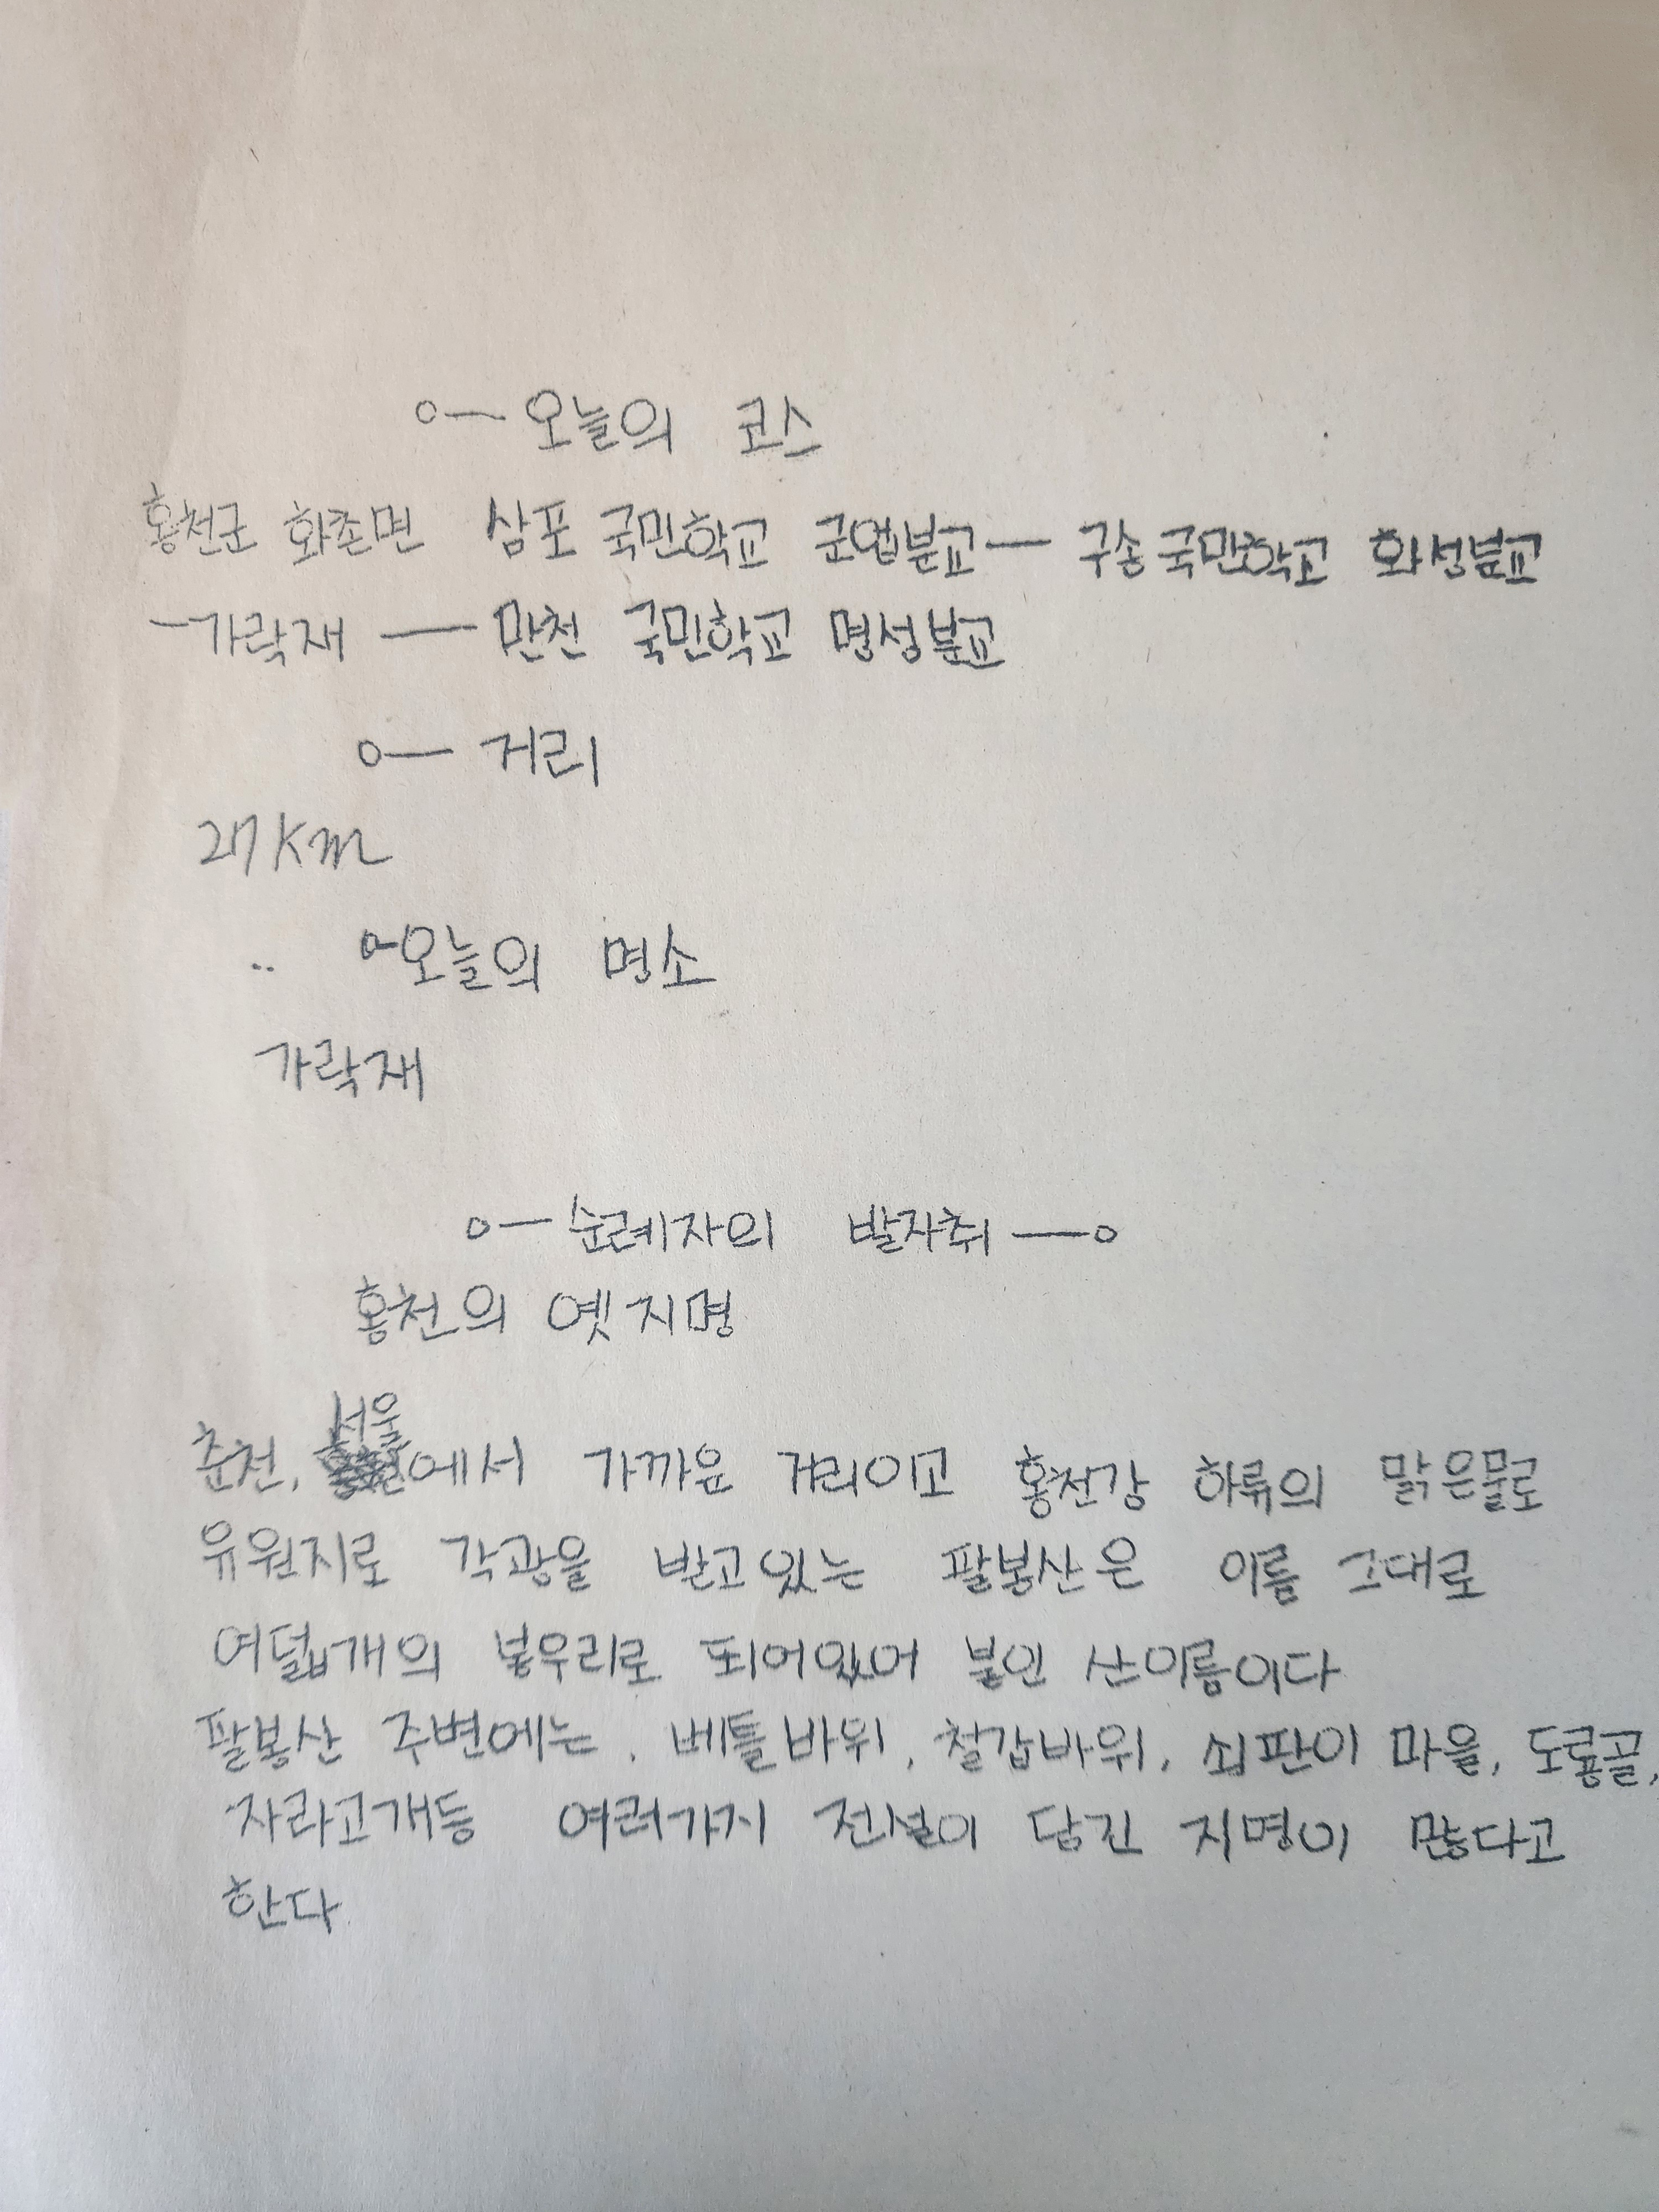 o— 오늘의 코스
홍천군 화촌면 삼포 국민학교 군업분교 — 구송국민학교 화성분교
— 가락재 — 만천 국민학교 명성분교
o— 거리
27Km
o-오늘의 명소
가락재
o— 순례자의 발자취 —o
홍천의 옛지명
서울
춘천, 에서 가까운 거리이고 홍천강 하류의 맑은물로
유원지로 각광을 받고있는 팔봉산은 이름 그대로
여덟개의 봉우리로 되어있어 붙인 산이름이다
팔봉산 주변에는, 베틀바위, 철갑바위, 쇠판이 마을, 도룡골,
자라고개등 여러가지 전설이 담긴 지명이 많다고
한다